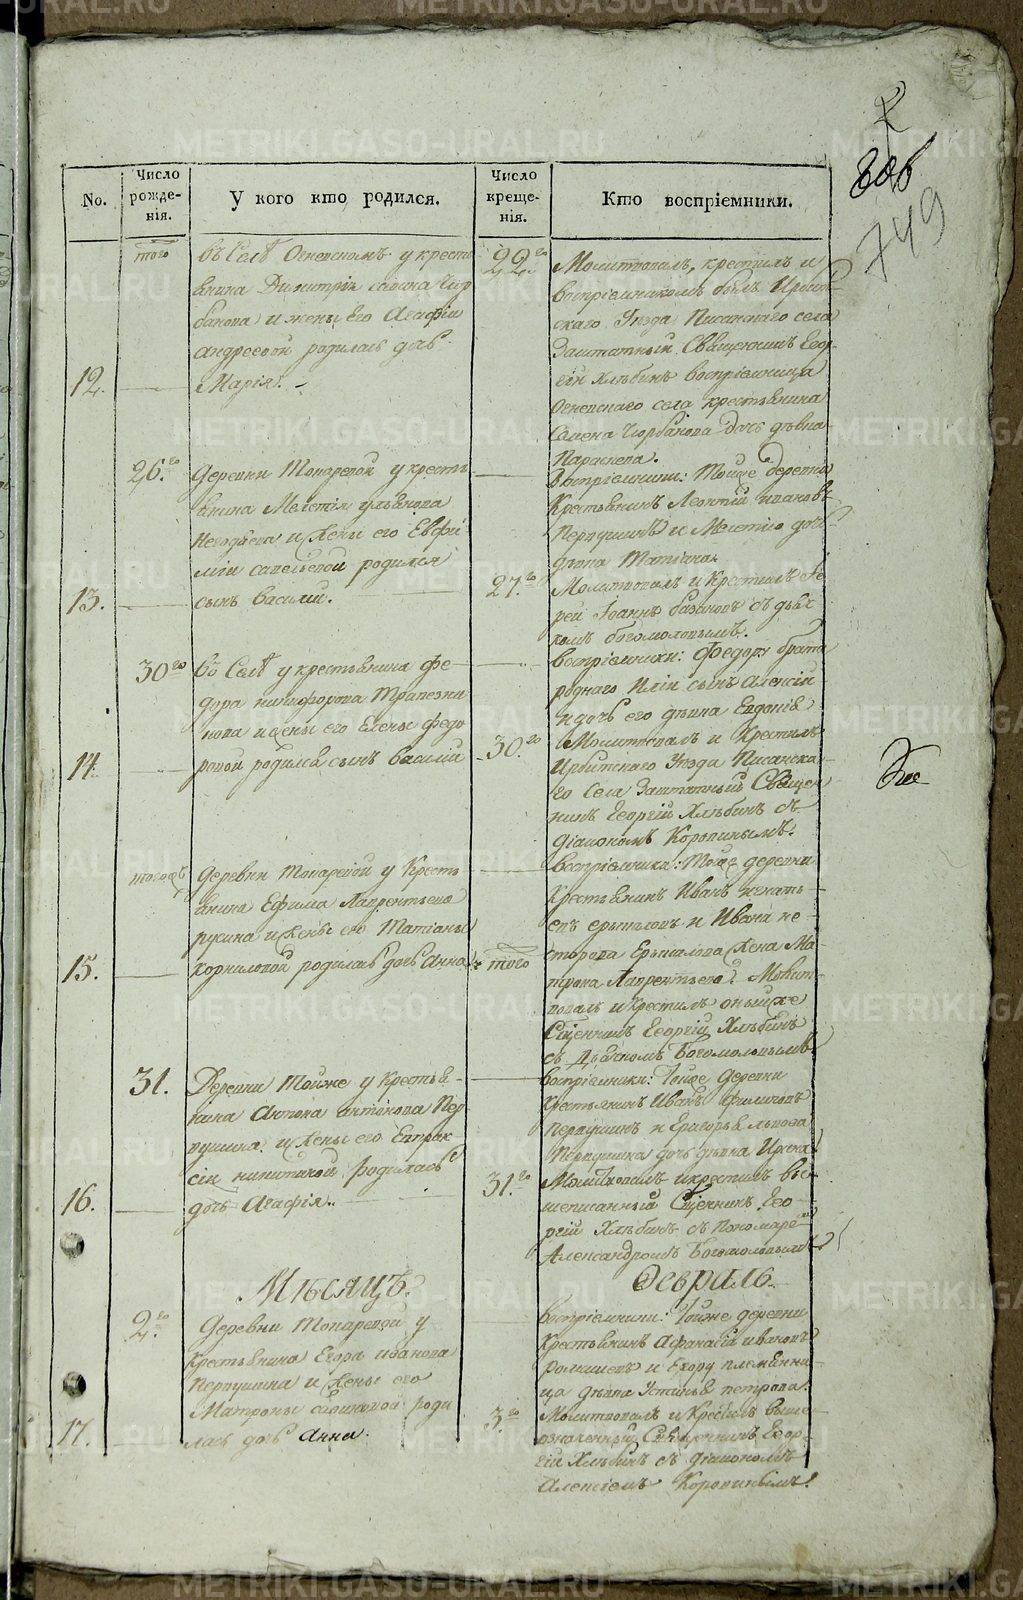 METRIKI.GASO-URAL.RU
806
749
No.
Число рожденія.
У кого кто родился.
Число крещенія.
Кто воспріемники.
того
въ Селѣ Огневскомъ у крестьянина Димитрія
и жены Его Агафіи
Андреевой родилась дочь
12.
Марія.
22.го
Молитвовалъ, крестилъ и
воспріемникомъ былъ Ирбитскаго Уѣзда Писанскаго села
Заштатный Священникъ Георгій Хлѣбинъ воспріемница
Огневскаго села крестьянина
Семена дочь дѣвка
Параскева.
26.го
Деревни Токаревой у крестьянина
и жены его Евфимiи Савельевой родился
13.
сынъ Василій.
Воспріемники: Тойже деревни
Крестьянинъ Леонтій Ивановъ
Первушинъ и дочь
дѣвка Татіана.
27.го
Молитвовалъ и Крестилъ Іерей Іоаннъ съ дьячкомъ Богомоловымъ.
30го
Въ Селѣ у крестьянина Федора Никифорова Трапезникова и жены его Елены Федоровой родился сынъ Василій
14.
воспріемники: Федору брата
роднаго Иліи сынъ Алексій
и дочь его дѣвка Евдокія
30.го
Молитвовалъ и Крестилъ
Ирбитскаго Уѣзда Писанскаго Села Заштатный Священникъ Георгій Хлѣбинъ съ
діакономъ Коровинымъ.
тогожъ
Деревни Токаревой у Крестьянина Ефима Лаврентьева
и жены его Татіаны
15.
Корниловой родилась дочь Анна
воспріемники: Тойже деревни
Крестьянинъ Иванъ
и Ивана
жена Матрона Лаврентьева. Молитвовалъ и Крестилъ онъ же
Священникъ Георгій Хлѣбинъ
съ Дьячкомъ Богомоловымъ
того
31.
Деревни Тойже у Крестьянина Антона Антонова Первушина и жены его Евпраксіи Никитиной родилась
16.
дочь Агафія.
воспріемники: Тойже деревни
Крестьянинъ Иванъ Филиповъ
Первушинъ и Григорья Львова
Первушина дочь дѣвка Ирина
31.го
Молитвовалъ и крестилъ вышеписанный Священникъ Георгій Хлѣбинъ съ Пономаремъ
Александромъ Богомоловымъ
Мѣсяцъ.
Февраль.
2.го
Деревни Токаревой у
Крестьянина Егора Иванова
Первушина и жены его
Матроны родилась дочь Анна.
17.
воспріемники: Тойже деревни
Крестьянинъ Афанасій Ивановъ
и Егору племянница дѣвка Устинья Петрова.
3.го
Молитвовалъ и Крестилъ вышеозначенный Священникъ Георгій Хлѣбинъ съ діакономъ
Алексіемъ Коровинымъ.